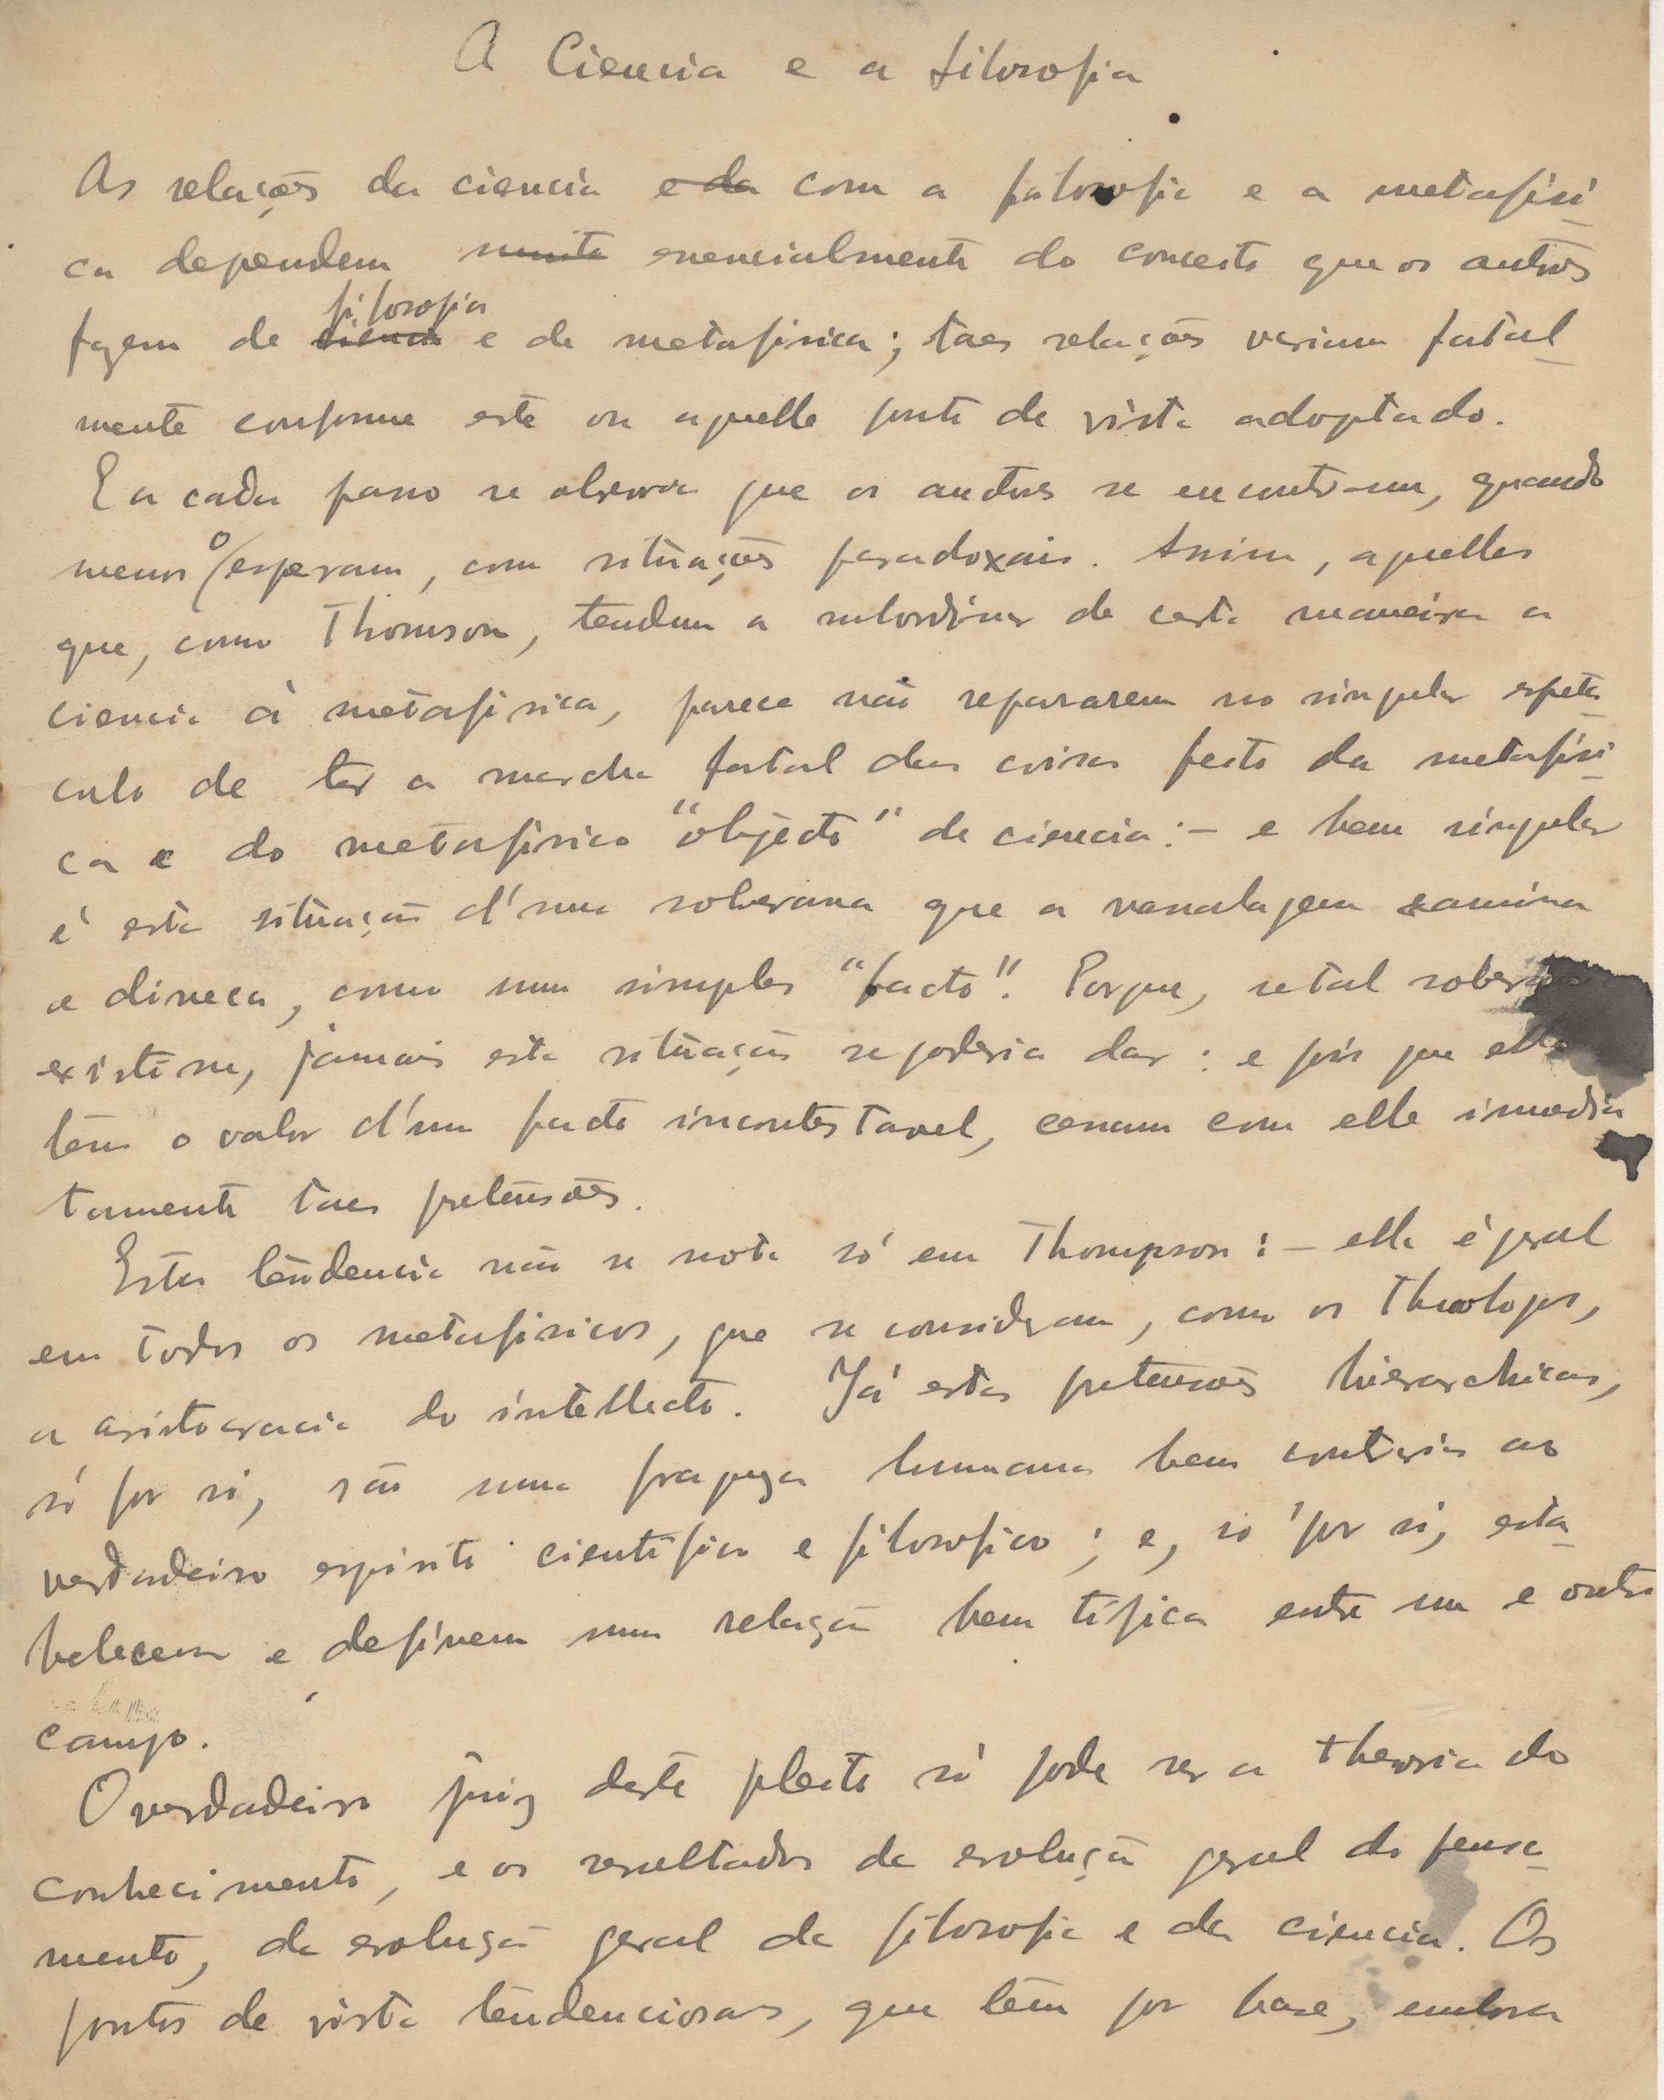 A Ciencia e a filosofia
As relações da ciencia e da com a filosofia e a metafisi-
ca dependem muito essencialmente do conceito que os autores
fazem de ciencia filosofia e de metafisica; taes relações variam fatal-
mente conforme este ou aquelle ponto de vista adoptado.
E a cada passo se observa que os autores se encontram, quando
menos o esperam, com situações paradoxais. Assim, aquelles
que, como Thomson, tendem a subordinar de certa maneira a
ciencia á metafisica, parece não repararem no singular espeta-
culo de ter a marcha fatal das coisas feito da metafisi-
ca e do metafisico "objecto" de ciencia: – e bem singular
é esta situação d'uma soberana que a vassalagem examina
e disseca, como um simples "facto". Porque, se tal soberania
existisse, jamais esta situação se poderia dar: e pois que ella
tem o valor d'um facto incontestavel, cessam com elle imedia
tamente taes pretensões.
Esta tendencia não se nota só em Thompson: – ella é geral
em todos os metafisicos, que se consideram, como os theologos,
a aristocracia do intellecto. Já estas pretensões hierarchicas,
só por si, são uma fraqueza humana bem contraria ao
verdadeiro espirito cientifico e filosofico; e, só por si, esta-
belecem e definem uma relação bem tífica entre um e outro
campo.
O verdadeiro juiz deste pleito só pode ser a theoria do
conhecimento, e os resultados da evolução geral do pensa-
mento, da evolução geral da filosofia e da ciencia. Os
pontos de vista tendenciosos, que têm por base, embora